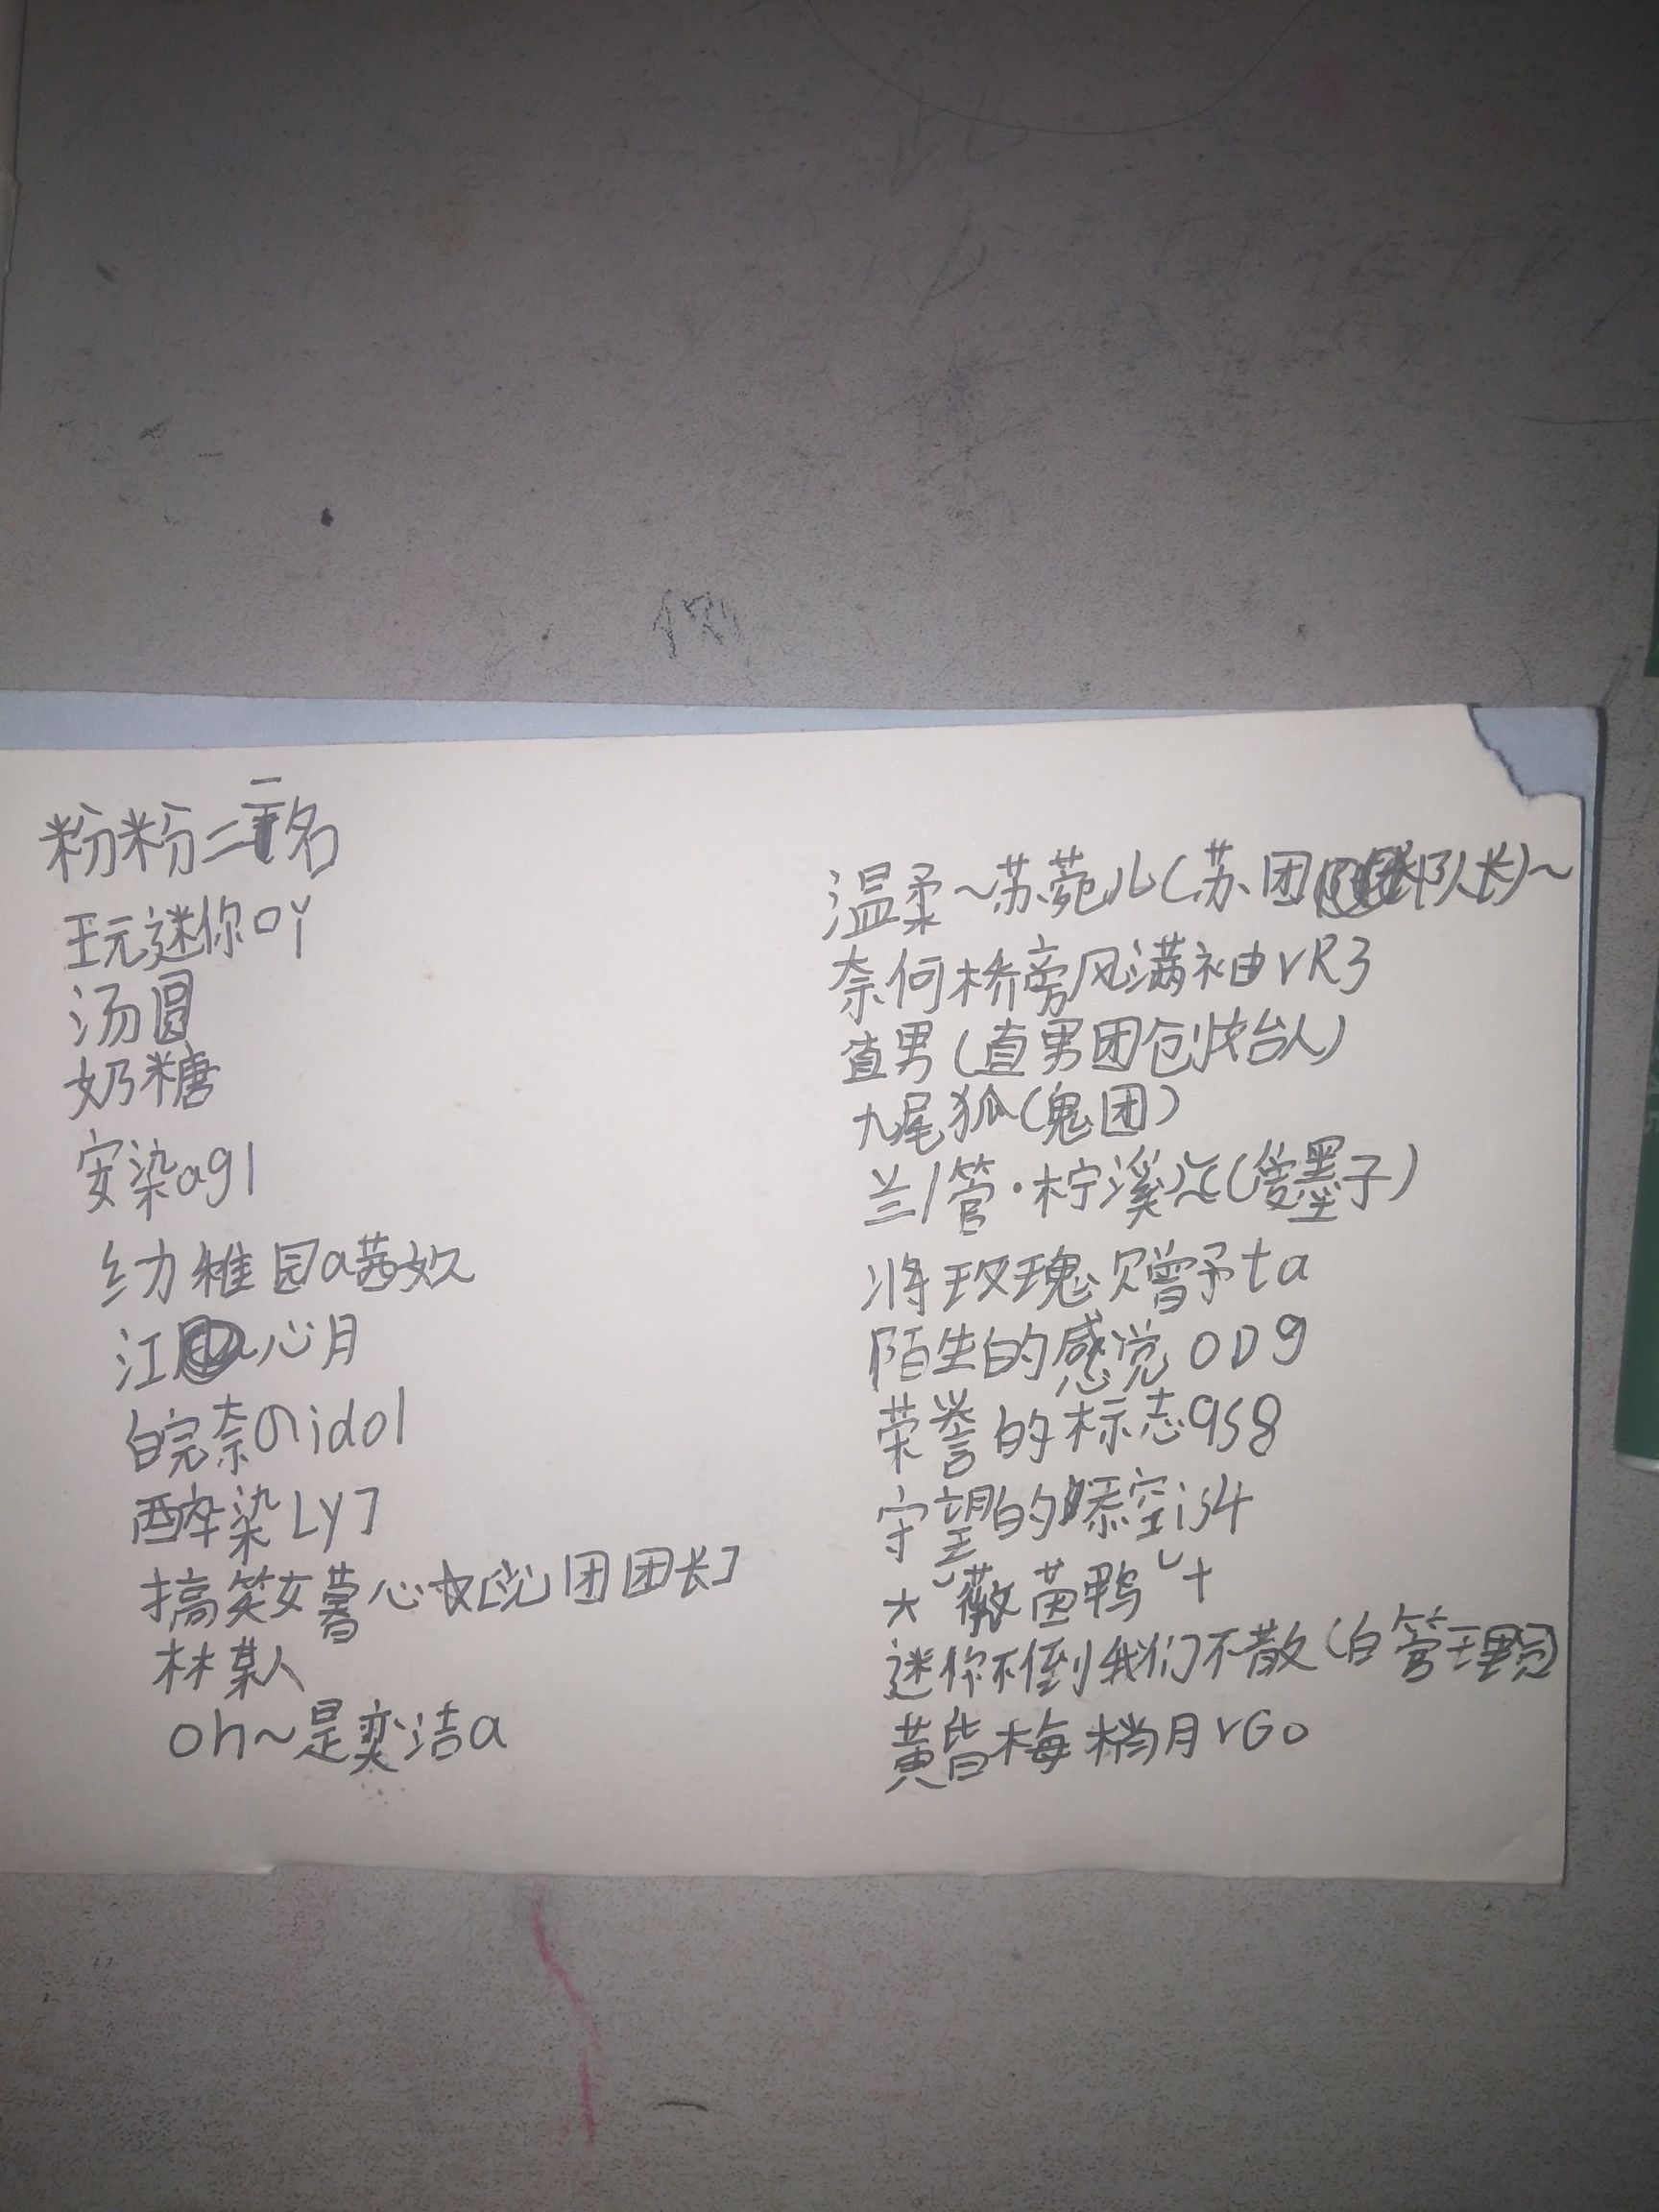 粉粉二名
玩迷你吖
汤圆
奶糖
安染ag1
幼稚园a茜奴
江心月
皖奈のidol
醉染Ly7
搞笑女暮心 团团长
林某人
oh~是奕洁a
温柔~苏菀儿(苏团队长)~
奈何桥旁风满袖rR3
直男(直男团创始人)
九尾狐(鬼团)
兰/管·柠溪 (爱墨子)
将玫瑰赠予ta
陌生的感觉0D9
荣誉的标志9s8
守望的 空is4
薇茵鸭
迷你不倒我们不散(白管理员)
黄昏梅梢月rGo